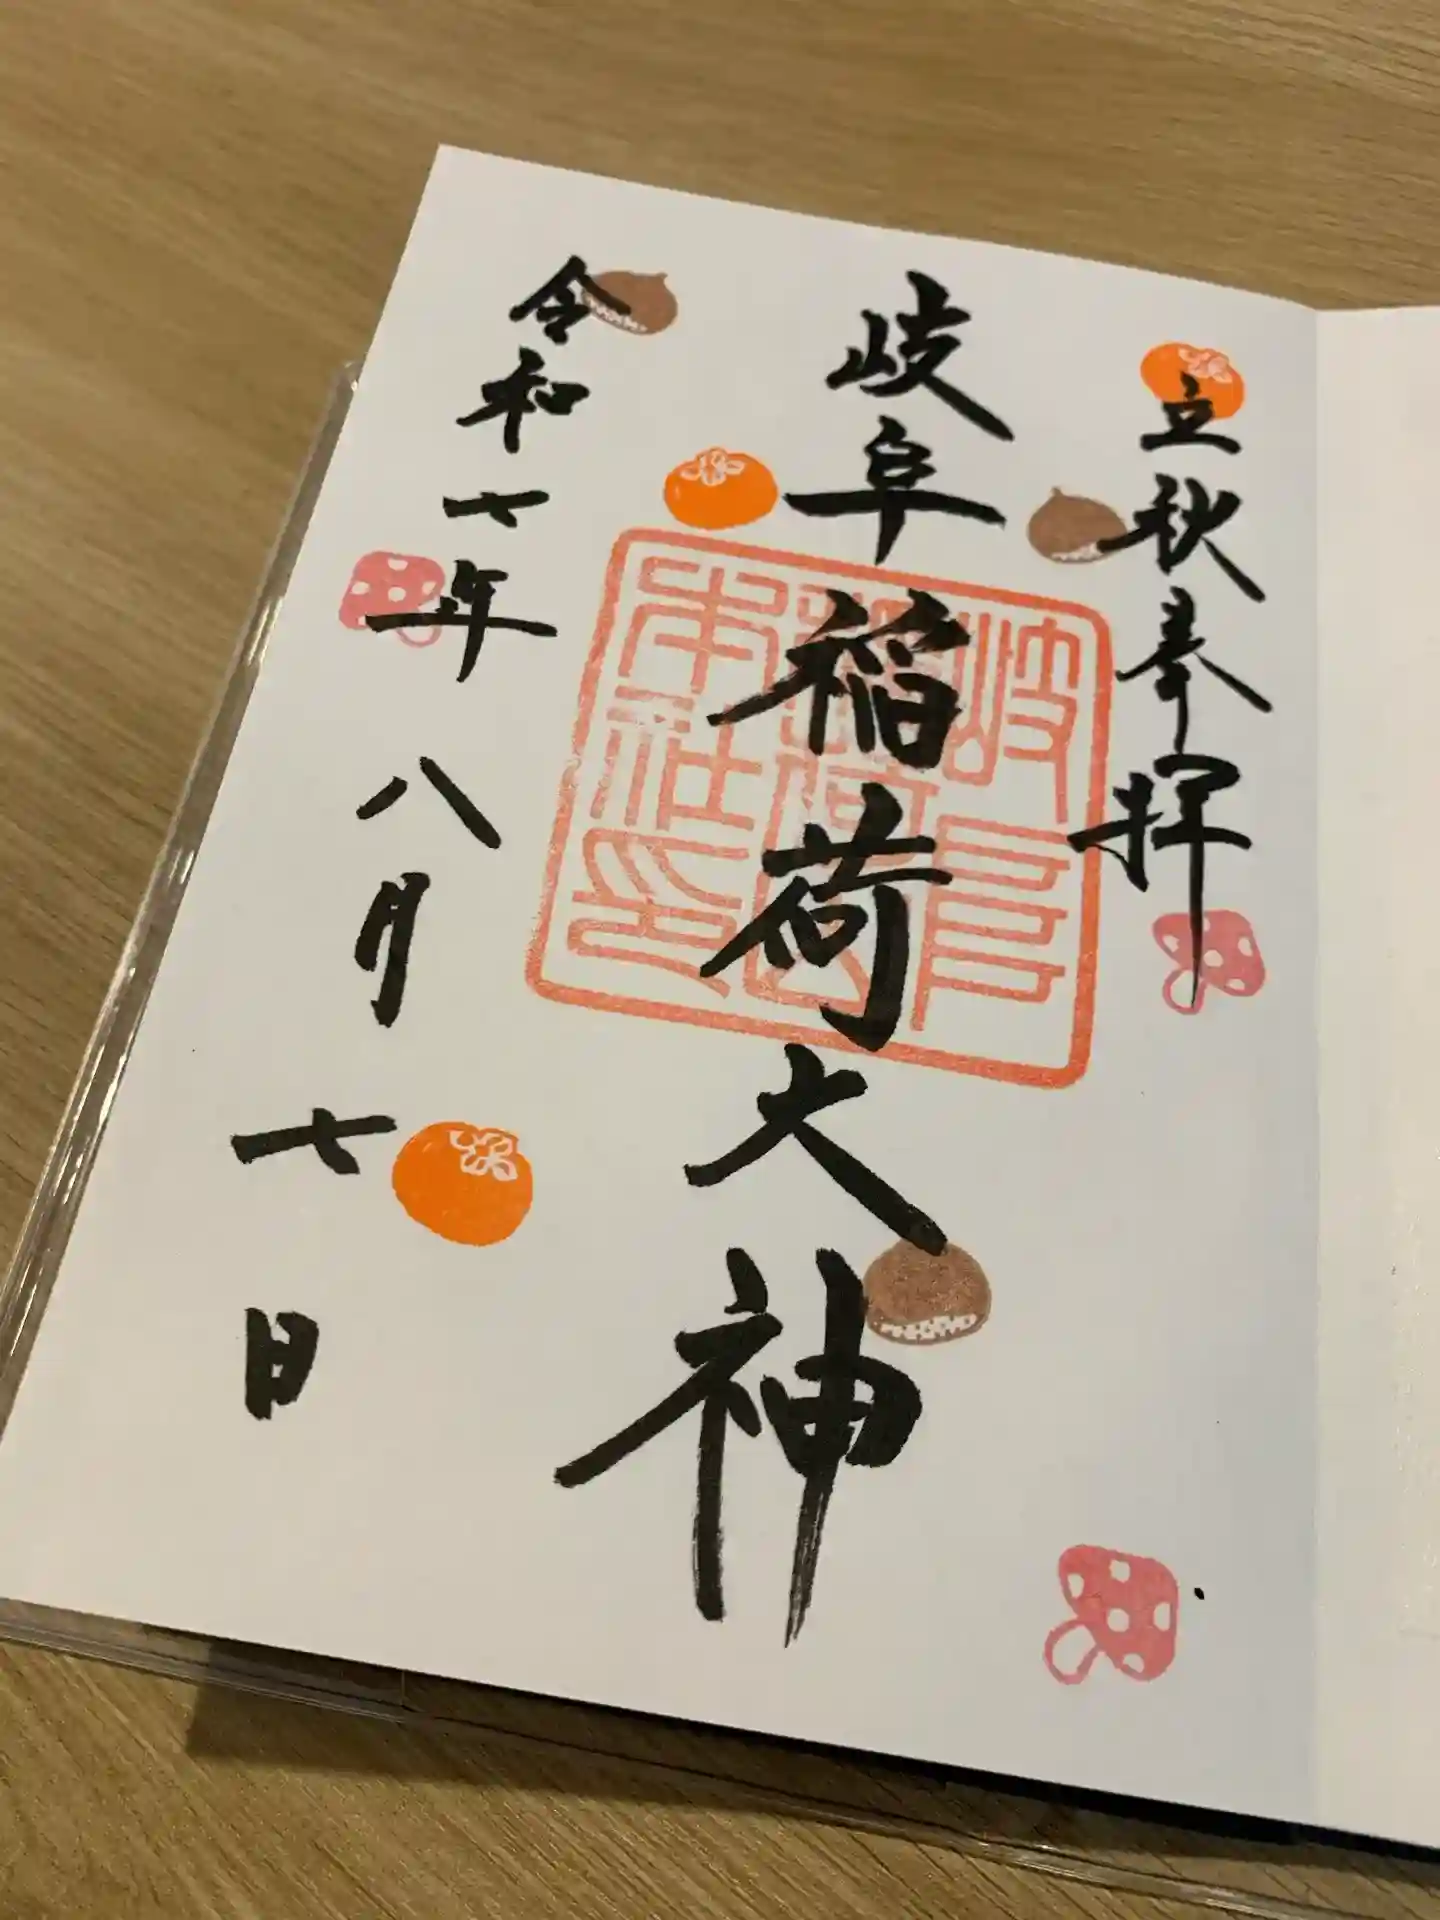 立秋奉拝
岐阜稲荷大神
岐阜稲荷山本社印
令和七年八月七日